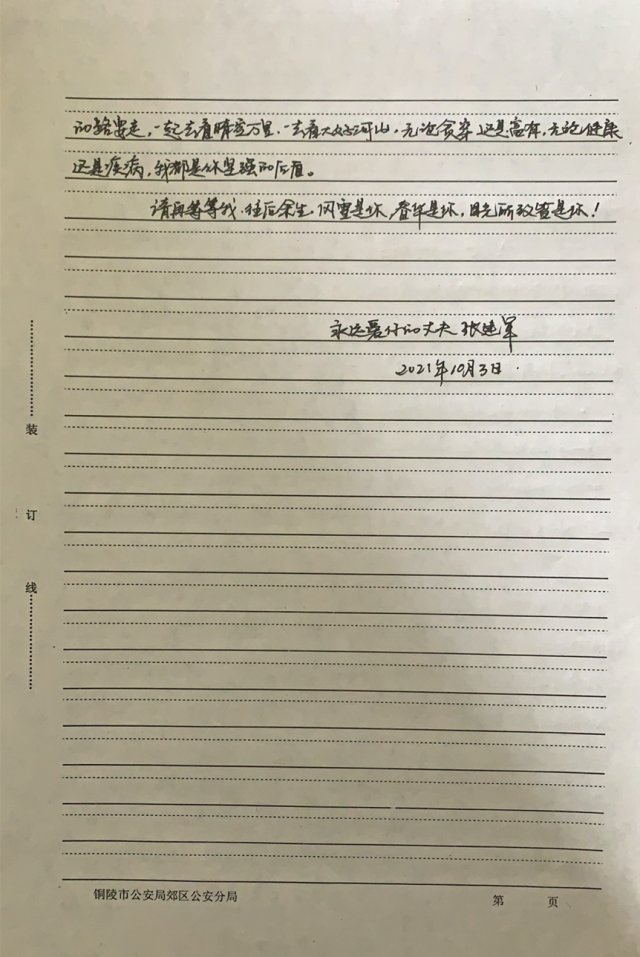 的路要走,一起去看晴空万里,一去看大好河山,无论贫穷还是富有,无论健康
还是疾病,我都是你坚强的后盾。
请再等等我,往后余生,风雪是你,春华是你,目光所致皆是你!
永远爱你的丈夫 张建军
2021年10月3日.
装
订
线
铜陵市公安局郊区公安分局
第 页